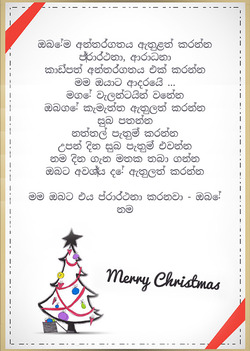 ඔබේම අන්තර්ගතය ඇතුළත් කරන්න
ප්‍රාර්ථනා, ආරාධනා
කාඩ්පත් අන්තර්ගතය එක් කරන්න
මම ඔයාට ආදරෙයි ...
මගේ වැලන්ටයින් වෙන්න
ඔබගේ කැමැත්ත ඇතුලත් කරන්න
සුබ පතන්න
නත්තල් පැතුම් කරන්න
උපන් දින සුබ පැතුම් එවන්න
නම දින ගැන මතක තබා ගන්න
ඔබට අවශ්‍ය දේ ඇතුලත් කරන්න
මම ඔබට එය ප්‍රාර්ථනා කරනවා - ඔබේ
නම
Merry Christmas